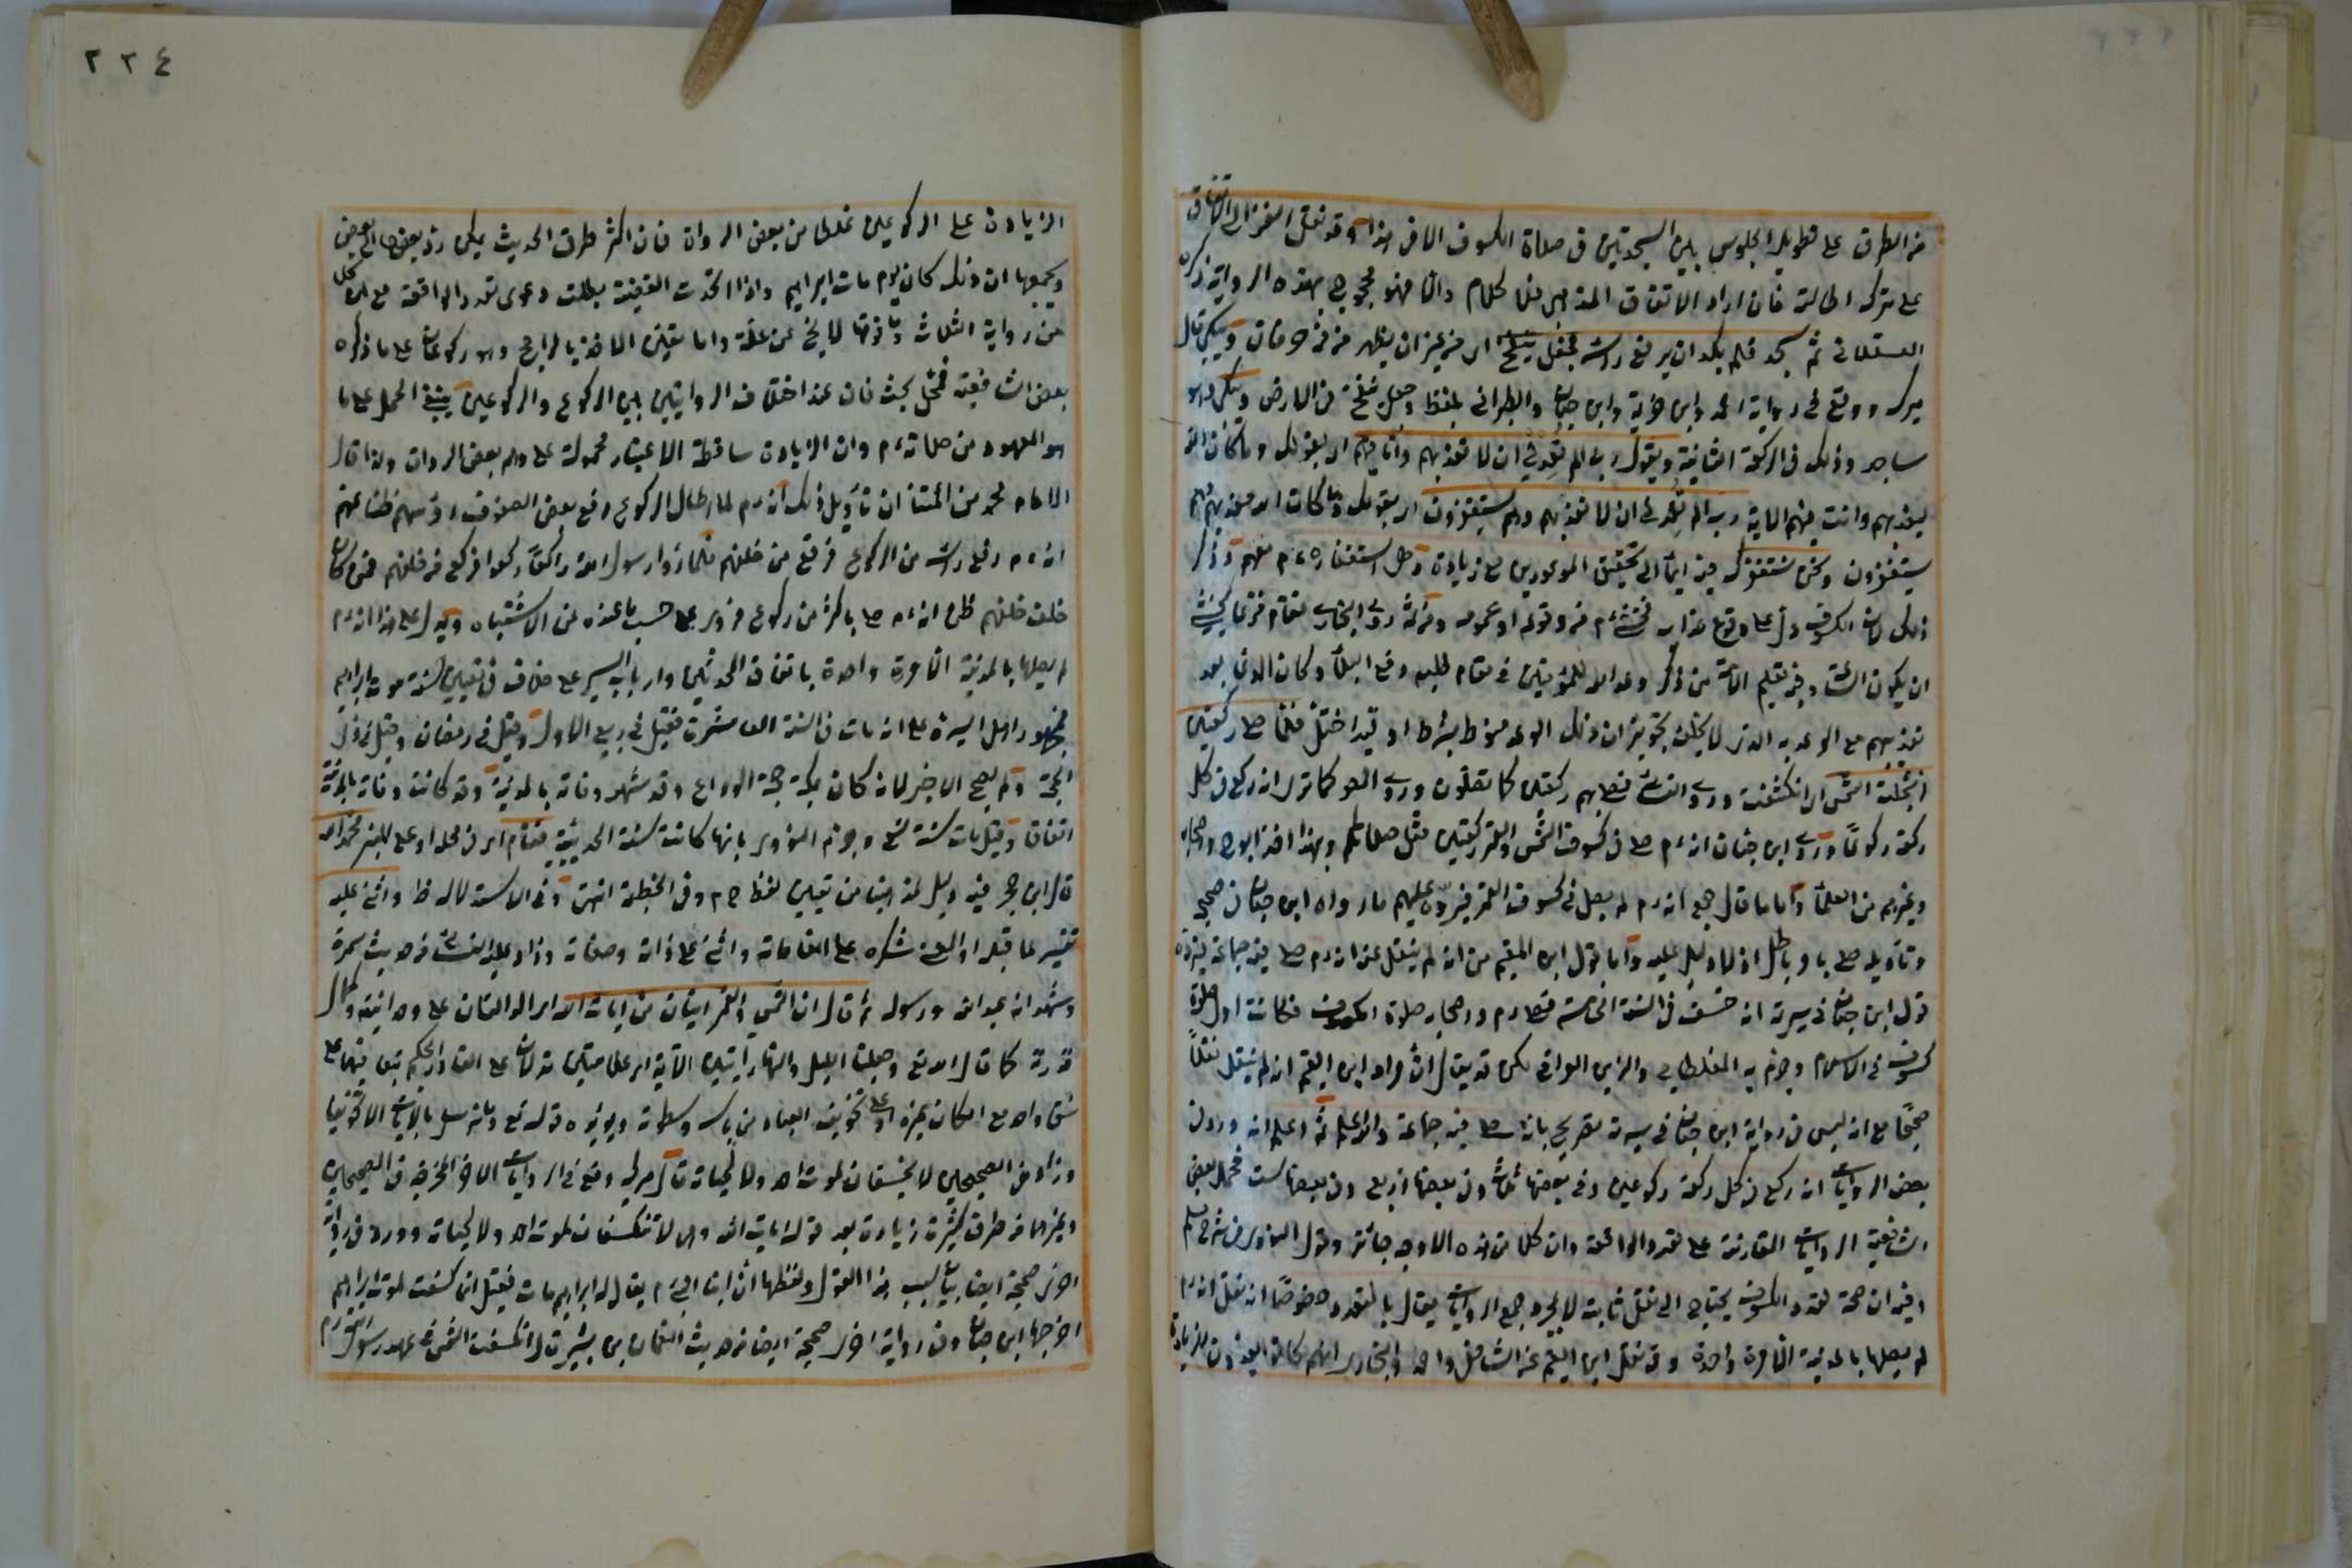 من الطرق على تطويل الجلوس بين السجدتين في صلاة الكسوف الا في هذا وقد نقل الغزالي الاتفاق
على ترك اطالته فان اراد الاتفاق المذهبي فلا كلام والا فهو محجوج بهذه الرواية ذكره
العسقلاني ثم سجد فلم يكد ان يرفع راسه فجعل ينفخ اي من غير ان يظهر من فمه حرفان ويبكي قال
ميرك ووقع في رواية احمد وابن خزيمة وابن حبان والطبراني بلفظ وجعل ينفخ في الارض ويبكي وهو
ساجد وذلك في الركعة الثانية ويقول رب الم تعدني ان لا تعذبهم وانا فيهم اي بقولك وما كان الله
ليعذبهم وانت فيهم الاية رب الم تعدني ان لا تعذبهم وهم يستغفرون اي بقولك وما كان الله معذبهم وهم
يستغفرون ونحن نستغفرك فيه ايماء الى تحقيق الموعودين مع زيادة وهي استغفاره ءم معهم وذكر
ذلك لان الكسوف دل على وقوع عذاب فخشي ءم من وقوعه او عمومه ومن ثمه روى البخاري فقام فزعا يخشى
ان يكون الساعة وفيه تعليم الامة من ذكر وعد الله للمؤمنين في مقام طلب دفع البلاء وكان الدعاء بعدم
تعذيبهم مع الوعد به الذي لا يخلف تجويز ان ذلك الوعد منوط بشرط او قيد اختل فلما صلى ركعتين
انجلت الشمس اي انكشفت وروى النسائي فصلى بهم ركعتين كما تصلون وروى ايضا انه ركع في كل
ركعة ركوعا وروى ابن حبان انه ءم صلى في كسوف الشمس والقمر ركعتين مثل صلاتكم وبهذا اخذ ابو ح واصحابه
وغيرهم من العلماء واما ما قال جمع انه ءم لم يصل في كسوف القمر فيرده عليهم ما رواه ابن حبان في صحيحه
وتاويله صلى باطل اذ لا دليل عليه واما قول ابن القيم من انه لم ينقل عنه انه ءم صلى فيه جماعة فيرده
قول ابن حبان في سيرته انه خسف في السنة الخامسة فصلى ءم واصحابه صلوة الكسوف فكانت اول صلوة
كسوف في الاسلام وجزم به المغلطاي والزين العراقي لكن قد يقال ان مراد ابن القيم انه لم ينقل نقلا
صحيحا مع انه ليس في رواية ابن حبان في سيرته تصريح بانه صلى فيه جماعة والله اعلم ثم اعلم انه ورد في
بعض الروايات انه ركع في كل ركعة ركوعين وفي بعضها ثلاث وفي بعضها اربع وفي بعضها ست فحمل بعض
الشافعية الروايات المتعارضة على تعدد الواقعة وان كلا من هذه الاوجه جائز وقواه النووي في شرح مسلم
وفيه ان صحة تعدد الكسوف يحتاج الى نقل ثابت لا بمجرد جمع الروايات يقال بالتعدد خصوصا انه نقل انه ءم
لم يصلها بالمدينة الا مرة واحدة وقد نقل ابن القيم عن الشافعي واحمد والبخاري انهم كانوا يعدون الزيادة
٢٢٤
الزيادة على الركوعين غلطا من بعض الرواة فان اكثر طرق الحديث يمكن رد بعضها الى بعض
ويجمعها ان ذلك كان يوم مات ابراهيم واذا اتحدت القضية بطلت دعوى تعدد الواقعة مع ان كل
من رواية الثلاث وما فوقها لا يخ عن علة واما تعين الاخذ بالراجح وهو ركوعان على ما ذكره
بعض الشافعية فمحل بحث فان عند اختلاف الروايتين بين الركوع والركوعين ينبغي الحمل على ما
هو المعهود من صلاته ءم وان الزيادة ساقطة الاعتبار محمولة على وهم بعض الرواة ولذا قال
الامام محمد من ائمتنا ان تاويل ذلك انه ءم لما اطال الركوع رفع بعض الصفوف رؤسهم ظنا منهم
انه ءم رفع راسه من الركوع فرفع من خلفهم فلما راوا رسول الله راكعا ركعوا فركع من خلفهم فمن كان
خلف خلفهم ظن انه ءم صلى باكثر من ركوع فروى على حسب ما عنده من الاشتباه ويدل على هذا انه ءم
لم يصلها بالمدينة الا مرة واحدة باتفاق المحدثين وارباب السير على خلاف في تعيين سنة موت ابراهيم
فجمهور اهل السيرة على انه مات في السنة العاشرة فقيل في ربيع الاول وقيل في رمضان وقيل في ذي
الحجة ولم يصح الاخير لانه كان بمكة حجة الوداع وقد شهد وفاته بالمدينة وقد كانت وفاته بالمدينة
اتفاقا وقيل مات سنة تسع وجزم النووي بانها كانت سنة الحديبية فقام اي في محله او على المنبر فحمد الله
قال ابن حجر فيه دليل لمذهبنا من تعيين لفظ ح م د في الخطبة انتهى وفي الاستدلال نظر واثنى عليه
تفسير لما قبله او المعنى شكره على انعاماته واثنى على ذاته وصفاته وزاد عليه النسائي من حديث سمرة
وشهد انه عبد الله ورسوله ثم قال ان الشمس والقمر ايتان من ايات الله اي الدالتان على وحدانيته وكمال
قدرته كما قال الله تع وجعلنا الليل والنهار آيتين الآية اي علامتين تدلان على القادر الحكيم بتعاقبهما على
نسق واحد مع امكان غيره او على تخويف العباد من باسه وسطوته ويؤيده قوله تع وما نرسل بالايات الا تخويفا
وزاد في الصحيحين لا يخسفان لموت احد ولا لحياته قال ميرك وقع في الروايات الاخر المخرجة في الصحيحين
وغيرهما من طرق كثيرة زيادة بعد قوله ايات الله وهي لا تنكسفان لموت احد ولا لحياته وورد في رواية
اخرى صحيحة ايضا بيان سبب هذا القول ولفظها ان ابنا للنبي ءم يقال له ابراهيم مات فقيل انما كسفت لموت ابراهيم
اخرجها ابن حبان وفي رواية اخرى صحيحة ايضا من حديث النعمان بن بشير قال انكسفت الشمس في عهد رسول الله ءم